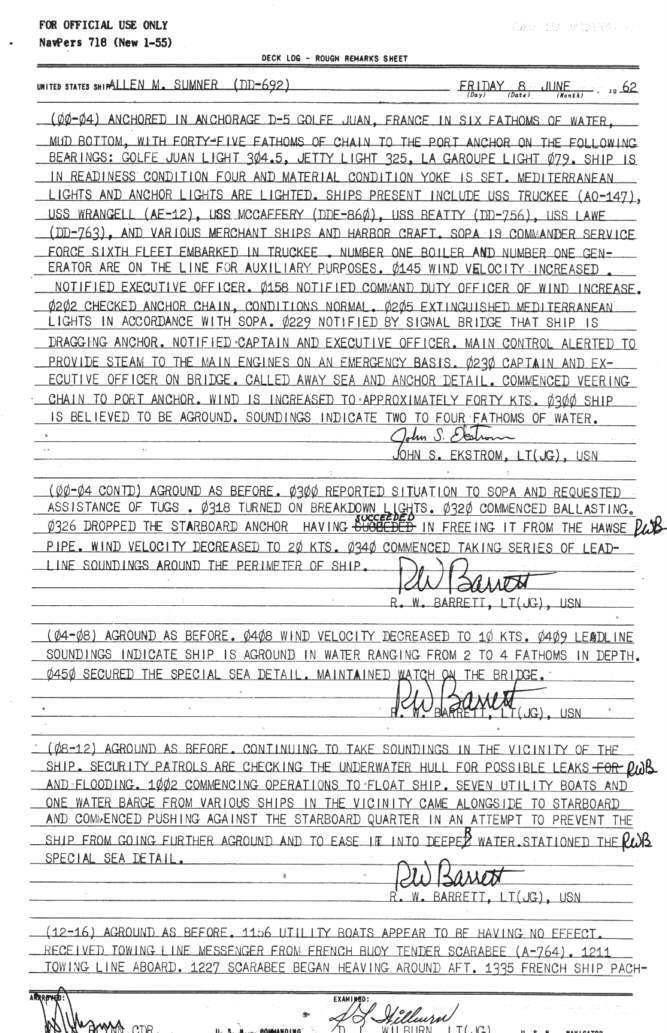 FOR OFFICIAL USE ONLY
NavPers 718 (New 1-55)
DECK LOG - ROUGH REMARKS SHEET
UNITED STATES SHIP ALLEN M. SUMNER (DD-692) FRIDAY 8 JUNE , 19 62
(Day) (Date) (Month)
(ØØ-Ø4) ANCHORED IN ANCHORAGE D-5 GOLFE JUAN, FRANCE IN SIX FATHOMS OF WATER,
MUD BOTTOM, WITH FORTY-FIVE FATHOMS OF CHAIN TO THE PORT ANCHOR ON THE FOLLOWING
BEARINGS: GOLFE JUAN LIGHT 3Ø4.5, JETTY LIGHT 325, LA GAROUPE LIGHT Ø79. SHIP IS
IN READINESS CONDITION FOUR AND MATERIAL CONDITION YOKE IS SET. MEDITERRANEAN
LIGHTS AND ANCHOR LIGHTS ARE LIGHTED. SHIPS PRESENT INCLUDE USS TRUCKEE (AO-147),
USS WRANGELL (AE-12), USS MCCAFFERY (DDE-86Ø), USS BEATTY (DD-756), USS LAWE
(DD-763), AND VARIOUS MERCHANT SHIPS AND HARBOR CRAFT. SOPA IS COMMANDER SERVICE
FORCE SIXTH FLEET EMBARKED IN TRUCKEE . NUMBER ONE BOILER AND NUMBER ONE GEN-
ERATOR ARE ON THE LINE FOR AUXILIARY PURPOSES. Ø145 WIND VELOCITY INCREASED .
NOTIFIED EXECUTIVE OFFICER. Ø158 NOTIFIED COMMAND DUTY OFFICER OF WIND INCREASE.
Ø2Ø2 CHECKED ANCHOR CHAIN, CONDITIONS NORMAL. Ø2Ø5 EXTINGUISHED MEDITERRANEAN
LIGHTS IN ACCORDANCE WITH SOPA. Ø229 NOTIFIED BY SIGNAL BRIDGE THAT SHIP IS
DRAGGING ANCHOR. NOTIFIED CAPTAIN AND EXECUTIVE OFFICER. MAIN CONTROL ALERTED TO
PROVIDE STEAM TO THE MAIN ENGINES ON AN EMERGENCY BASIS. Ø23Ø CAPTAIN AND EX-
ECUTIVE OFFICER ON BRIDGE. CALLED AWAY SEA AND ANCHOR DETAIL. COMMENCED VEERING
CHAIN TO PORT ANCHOR. WIND IS INCREASED TO APPROXIMATELY FORTY KTS. Ø3ØØ SHIP
IS BELIEVED TO BE AGROUND. SOUNDINGS INDICATE TWO TO FOUR FATHOMS OF WATER.
John S. Ekstrom
JOHN S. EKSTROM, LT(JG), USN
(ØØ-Ø4 CONTD) AGROUND AS BEFORE. Ø3ØØ REPORTED SITUATION TO SOPA AND REQUESTED
ASSISTANCE OF TUGS . Ø318 TURNED ON BREAKDOWN LIGHTS. Ø32Ø COMMENCED BALLASTING.
SUCCEEDED
Ø326 DROPPED THE STARBOARD ANCHOR HAVING IN FREEING IT FROM THE HAWSE RWB
PIPE. WIND VELOCITY DECREASED TO 2Ø KTS. Ø34Ø COMMENCED TAKING SERIES OF LEAD-
LINE SOUNDINGS AROUND THE PERIMETER OF SHIP.
RW Barrett
R. W. BARRETT, LT(JG), USN
(Ø4-Ø8) AGROUND AS BEFORE. Ø4Ø8 WIND VELOCITY DECREASED TO 1Ø KTS. Ø4Ø9 LEADLINE
SOUNDINGS INDICATE SHIP IS AGROUND IN WATER RANGING FROM 2 TO 4 FATHOMS IN DEPTH.
Ø45Ø SECURED THE SPECIAL SEA DETAIL. MAINTAINED WATCH ON THE BRIDGE.
RW Barrett
R. W. BARRETT, LT(JG), USN
(Ø8-12) AGROUND AS BEFORE. CONTINUING TO TAKE SOUNDINGS IN THE VICINITY OF THE
SHIP. SECURITY PATROLS ARE CHECKING THE UNDERWATER HULL FOR POSSIBLE LEAKS FOR RWB
AND FLOODING. 1ØØ2 COMMENCING OPERATIONS TO FLOAT SHIP. SEVEN UTILITY BOATS AND
ONE WATER BARGE FROM VARIOUS SHIPS IN THE VICINITY CAME ALONGSIDE TO STARBOARD
AND COMMENCED PUSHING AGAINST THE STARBOARD QUARTER IN AN ATTEMPT TO PREVENT THE
SHIP FROM GOING FURTHER AGROUND AND TO EASE IT INTO DEEPER WATER. STATIONED THE RWB
SPECIAL SEA DETAIL.
RW Barrett
R. W. BARRETT, LT(JG), USN
(12-16) AGROUND AS BEFORE. 1156 UTILITY BOATS APPEAR TO BE HAVING NO EFFECT.
RECEIVED TOWING LINE MESSENGER FROM FRENCH BUOY TENDER SCARABEE (A-764). 1211
TOWING LINE ABOARD. 1227 SCARABEE BEGAN HEAVING AROUND AFT. 1335 FRENCH SHIP PACH-
APPROVED: EXAMINED:
CDR U. S. N. COMMANDING WILBURN LT(JG) U. S. N. NAVIGATOR